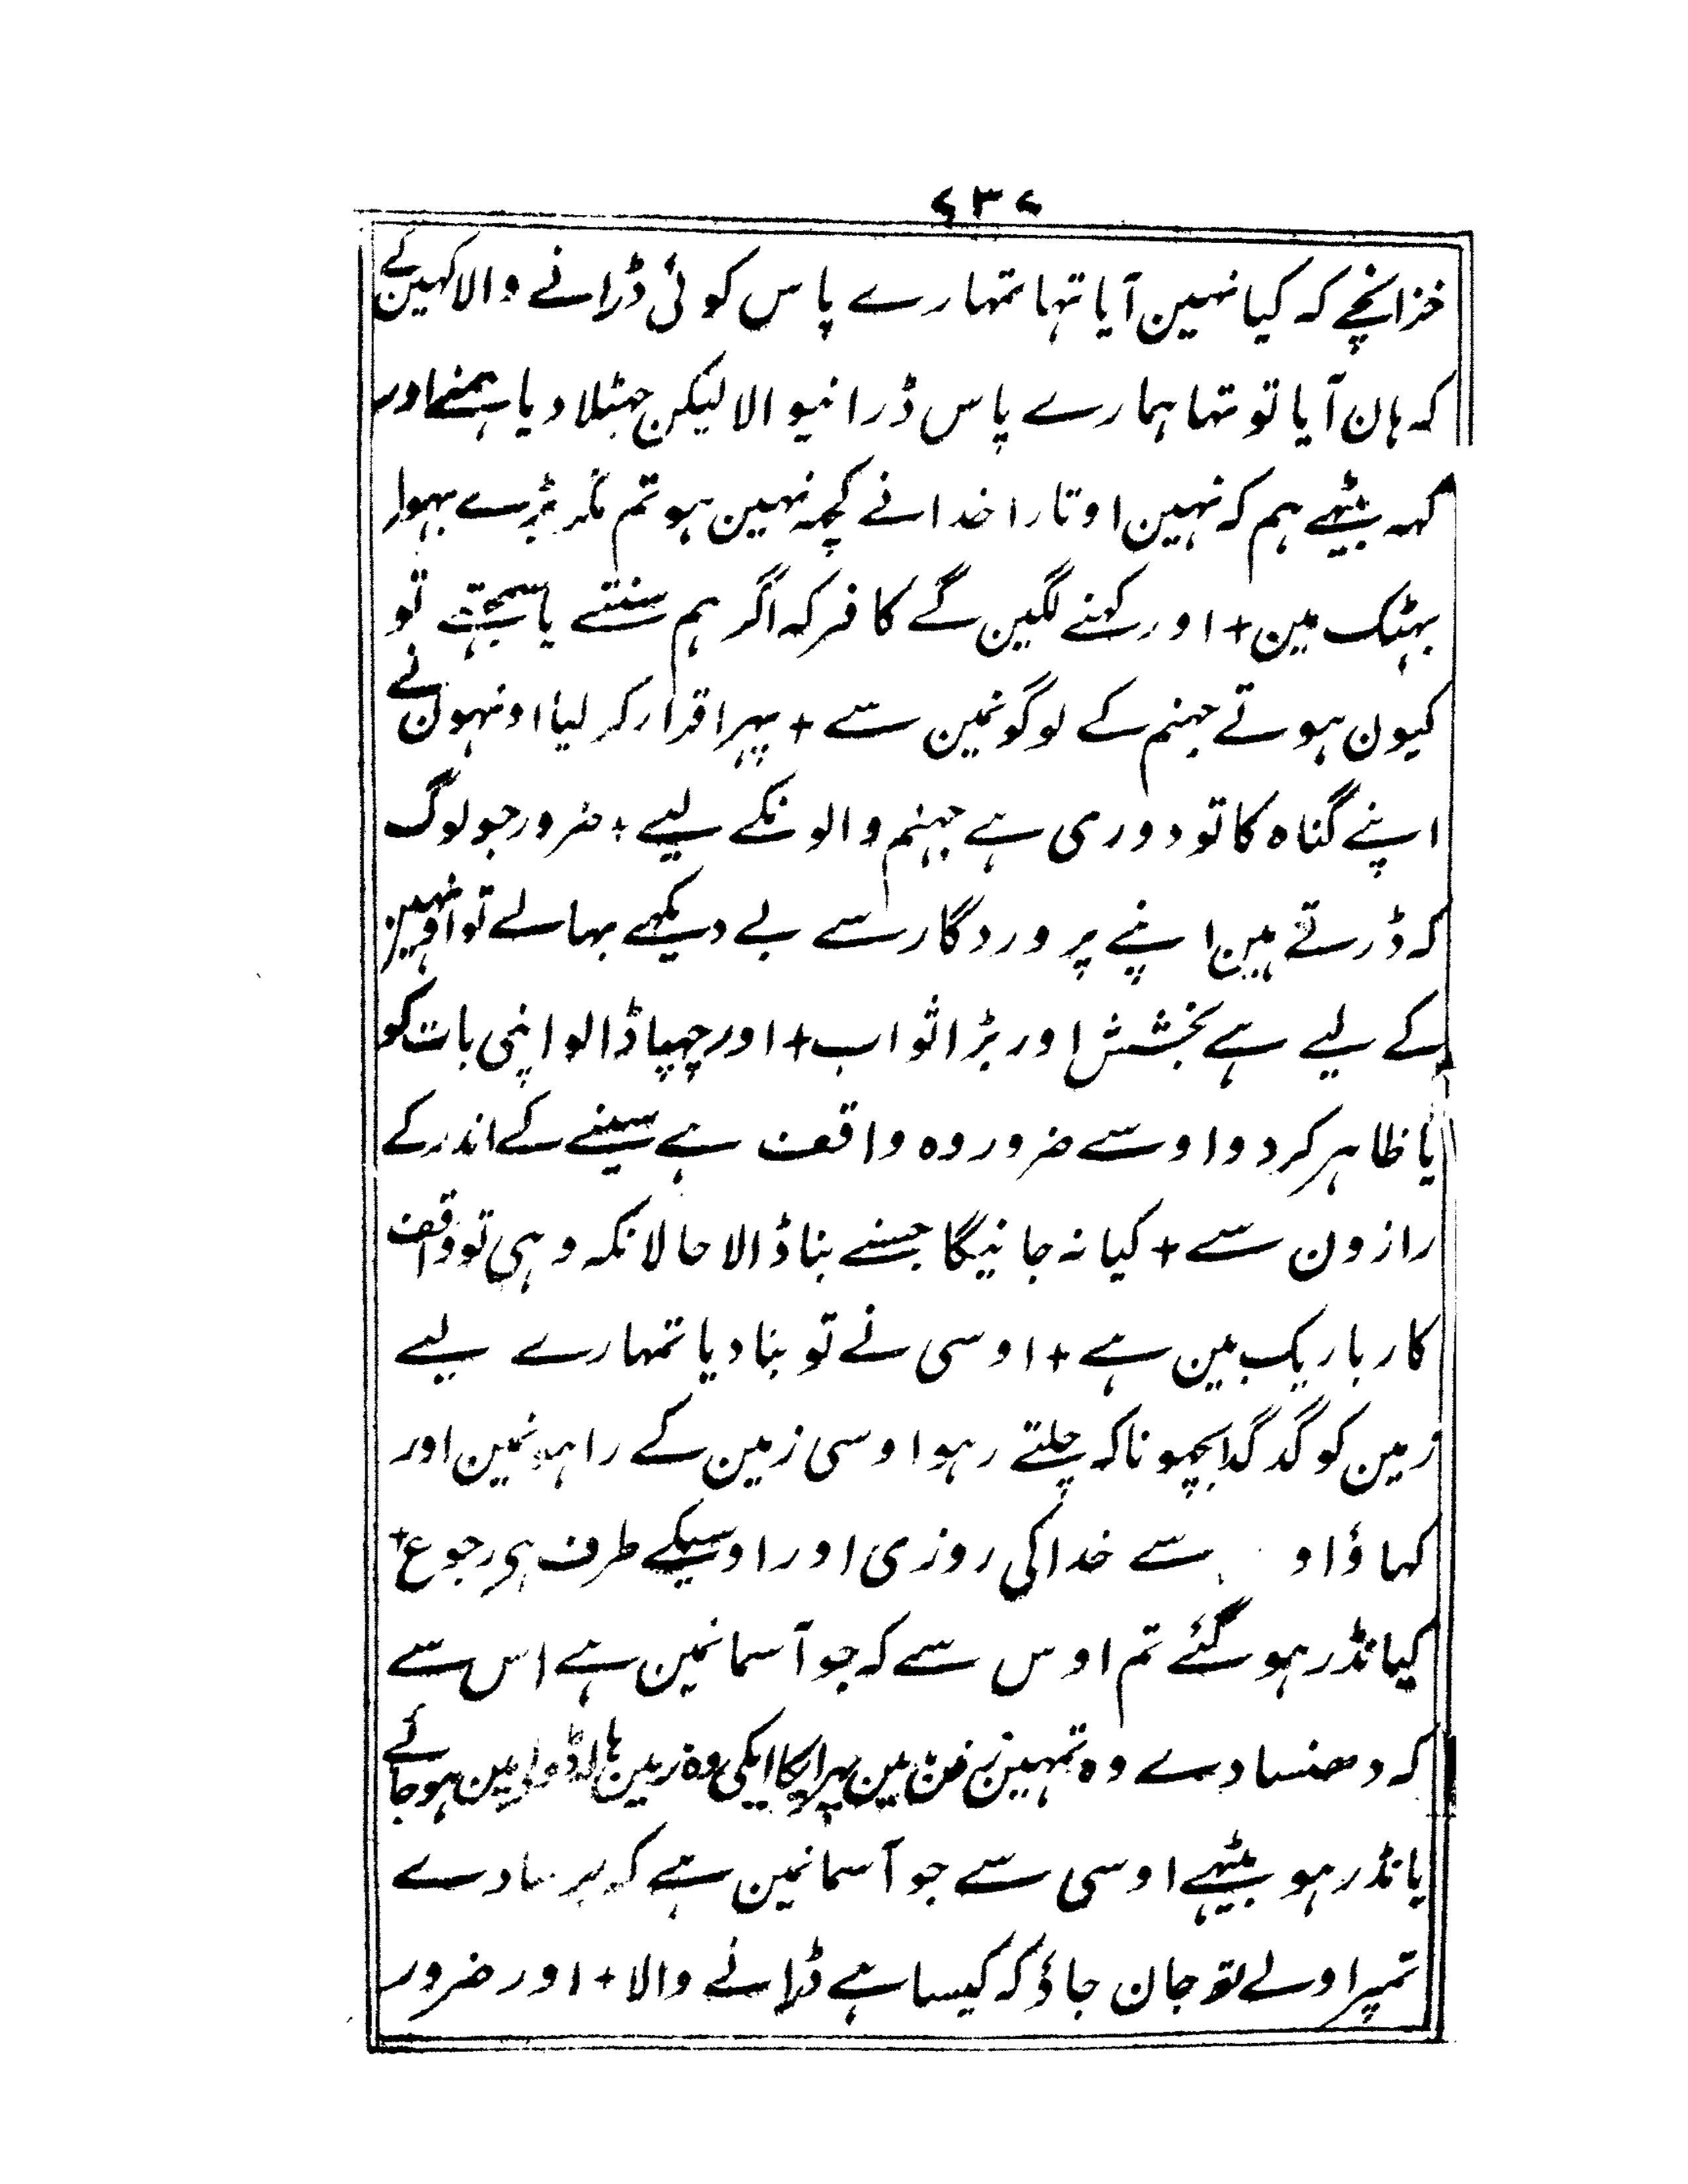 خزانچے کہ کیا نہین آیا تہا تمہارے پاس کوئی ڈرانے والا کہین گے
کہ ہان آیا تو تہا ہمارے پاس ڈرانیوالا لیکن جہٹلا دیا ہمنے اور
کہہ بیٹھے ہم کہ نہین اوتارا خدا نے کچھ نہین ہو تم مگر بڑے
بہٹک مین + اور کہنے لگین گے کافر کہ اگر ہم سنتے یا سمجھتے تو
کیون ہوتے جہنم کے لوگونمین سے + پہر اقرار کر لیا اونہون نے
اپنے گناہ کا تو دوری ہے جہنم والونکے لیے + ضرور جو لوگ
کہ ڈرتے ہین اپنے پروردگار سے بے دیکھے بہالے تو اونہین
کے لیے ہے بخشش اور بڑا ثواب + اور چہپا ڈالو اپنی بات کو
یا ظاہر کردو اوسے ضرور وہ واقف ہے سینے کے اندر کے
رازون سے + کیا نہ جانیگا جسنے بنا ڈالا حالانکہ وہی تو واقف
کار باریک بین ہے + اوسی نے تو بنا دیا تمہارے لیے
زمین کو گدگدا بچھونا کہ چلتے رہو اوسی زمین کے راہونمین اور
کہاؤ او سے خدا کی روزی اور اوسیکے طرف ہی رجوع +
کیا نڈر ہو گئے تم اوس سے کہ جو آسمانمین ہے اس سے
کہ دھنسا دے وہ تمہین زمین مین پہر ایکا ایکی وہ زمین ہالا ڈولی مین ہو جائے
یا نڈر ہو بیٹھے اوسی سے جو آسمانمین ہے کہ برسادے
تمپر اولے تو جان جاؤ کہ کیسا ہے ڈرانے والا + اور ضرور